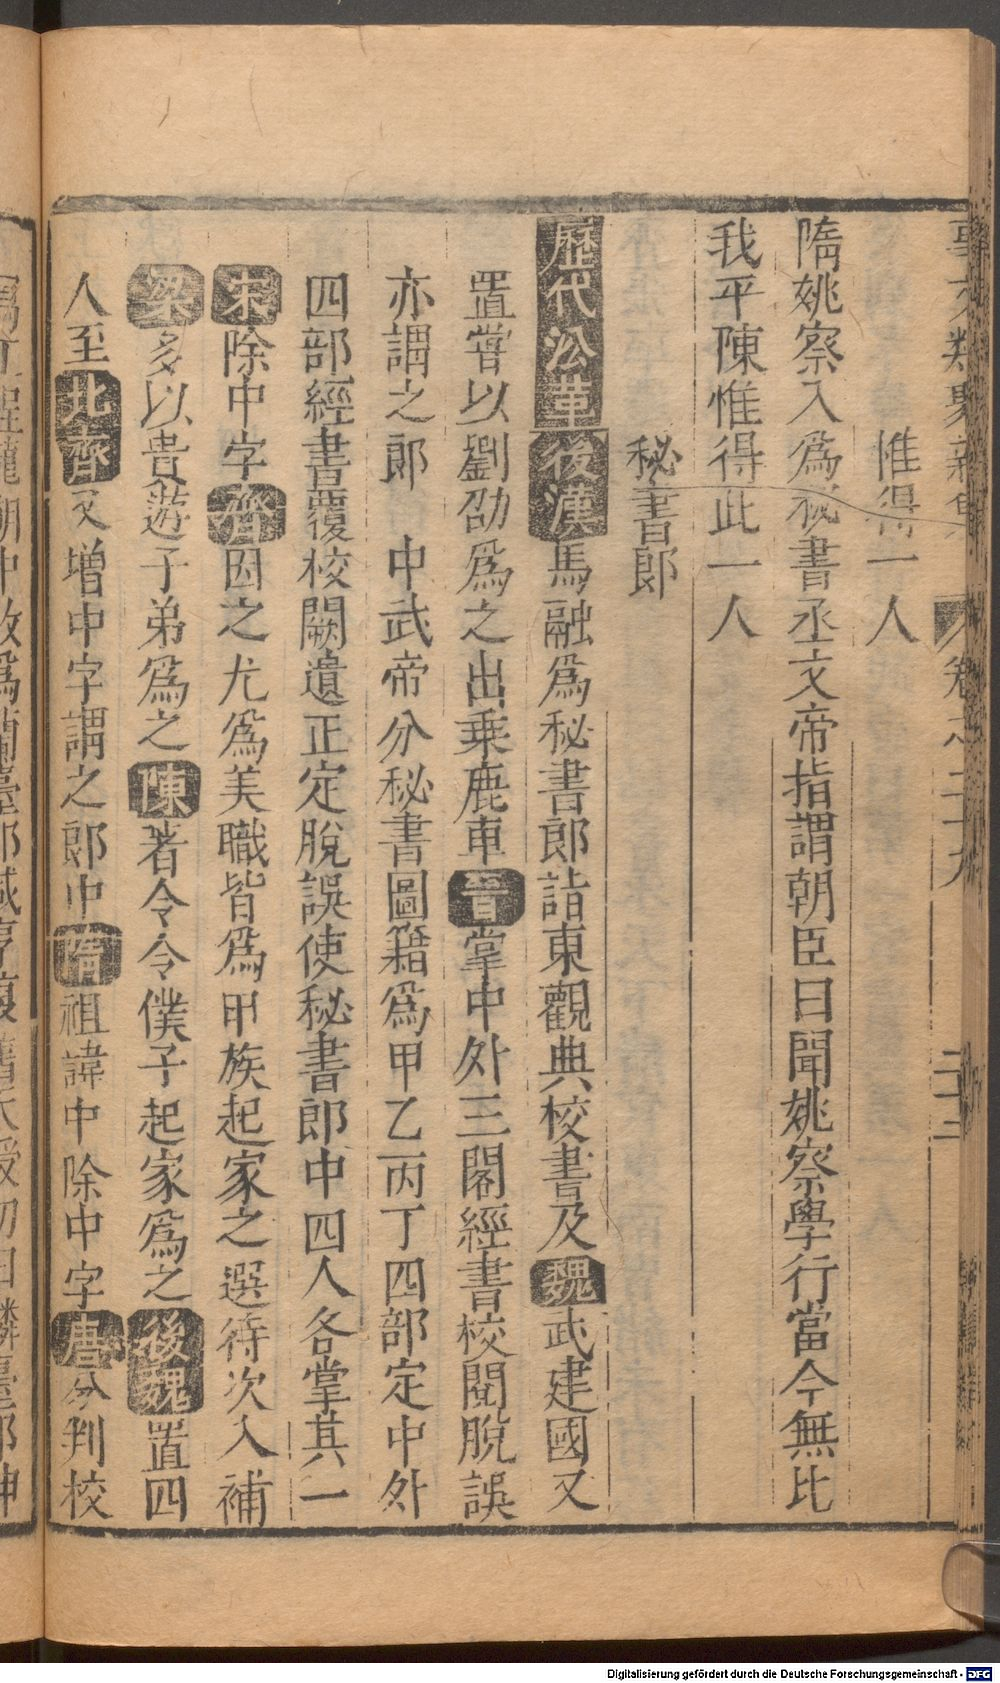 惟得一人
隋姚察入爲秘書丞文帝指謂朝臣曰聞姚察學行當今無比
我平陳惟得此一人
秘書郎
歷代㳂革 後漢馬融爲秘書郎詣東觀典校書及魏武建國又
置嘗以劉劭爲之出乗鹿車晋掌中外三閣經書校閱脫誤
亦謂之郎中武帝分秘書圖籍爲甲乙丙丁四部定中外
四部經書覆校闕遺正定脫誤使秘書郎中四人各掌其一
宋除中字齊因之尤爲美職皆爲甲族起家之選待次入補
梁多以貴遊子弟爲之陳著令令僕子起家爲之後魏置四
人至北齊又增中字謂之郎中隋祖諱中除中字唐分判校
Digitalisierung gefördert durch die Deutsche Forschungsgemeinschaft - DFG